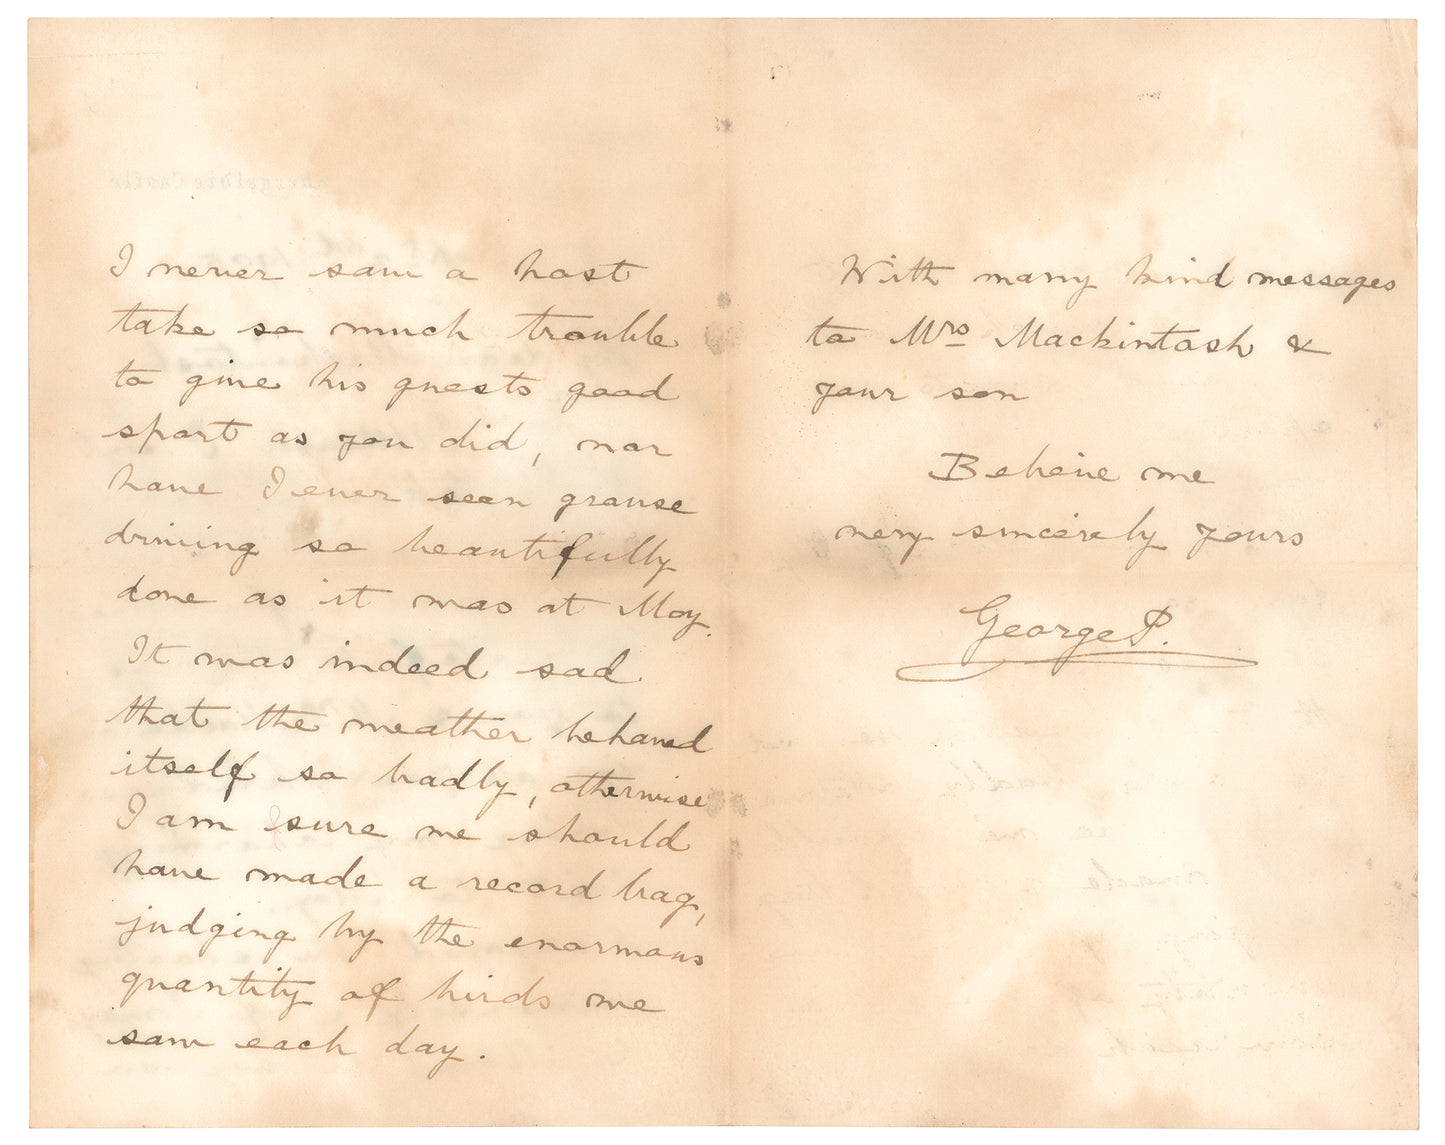 I never saw a host
take so much trouble
to give his guests good
sport as you did, nor
have I ever seen grouse
driving so beautifully
done as it was at Moy.
It was indeed sad
that the weather behaved
itself so badly, otherwise
I am sure we should
have made a record bag,
judging by the enormous
quantity of birds we
saw each day.
With many kind messages
to Mrs Mackintosh &
your son
Believe me
very sincerely yours
George P.